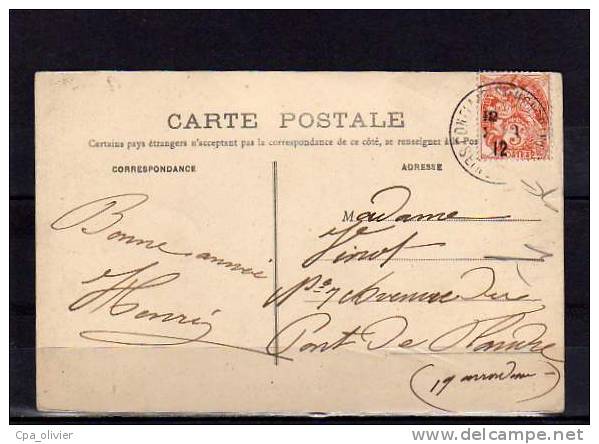 CARTE POSTALE
Certains pays étrangers n'acceptant pas la correspondance de ce côté, se renseigner à la Pos
CORRESPONDANCE
ADRESSE
Bonne année
Henri
Madame
Vinot
No 7 Avenue du
Pont de Flandre
(19 arrondme
12
3
12
Cpa_olivier
delcampe.net